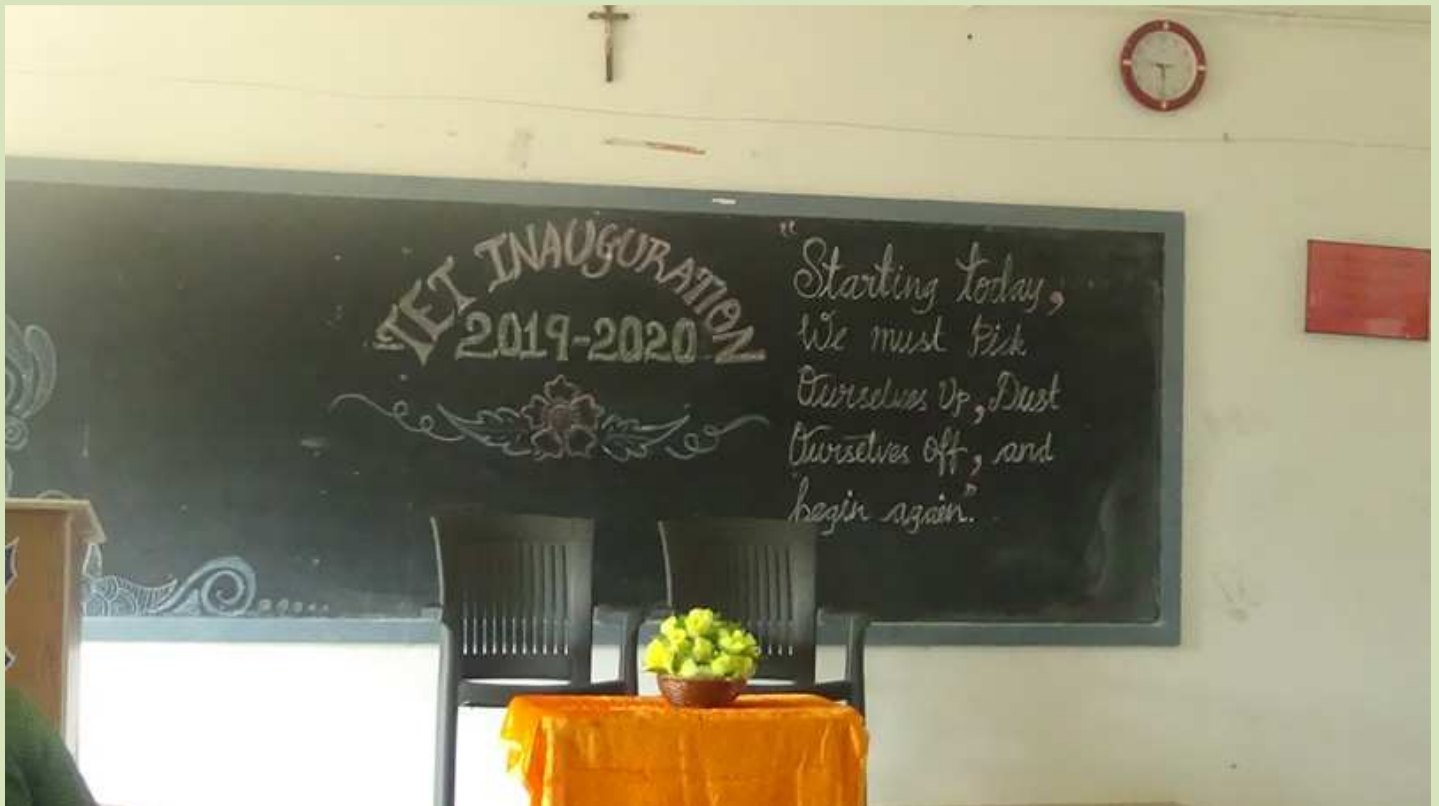 TET INAUGURATION
2019-2020
"Starting today,
We must Pick
Ourselves Up, Dust
Ourselves Off, and
begin again."